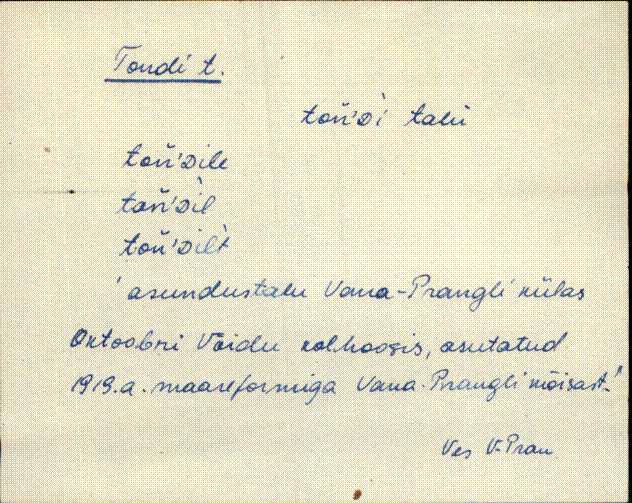 Tondi t.
toń'Dì talu
toń'Dile
toń'Dìl
toń'Dilt
'asundustalu Vana-Prangli külas
Oktoobri Võidu kolhoosis, asutatud
1919.a. maareformiga Vana-Prangli mõisast.'
Ves V-Pran